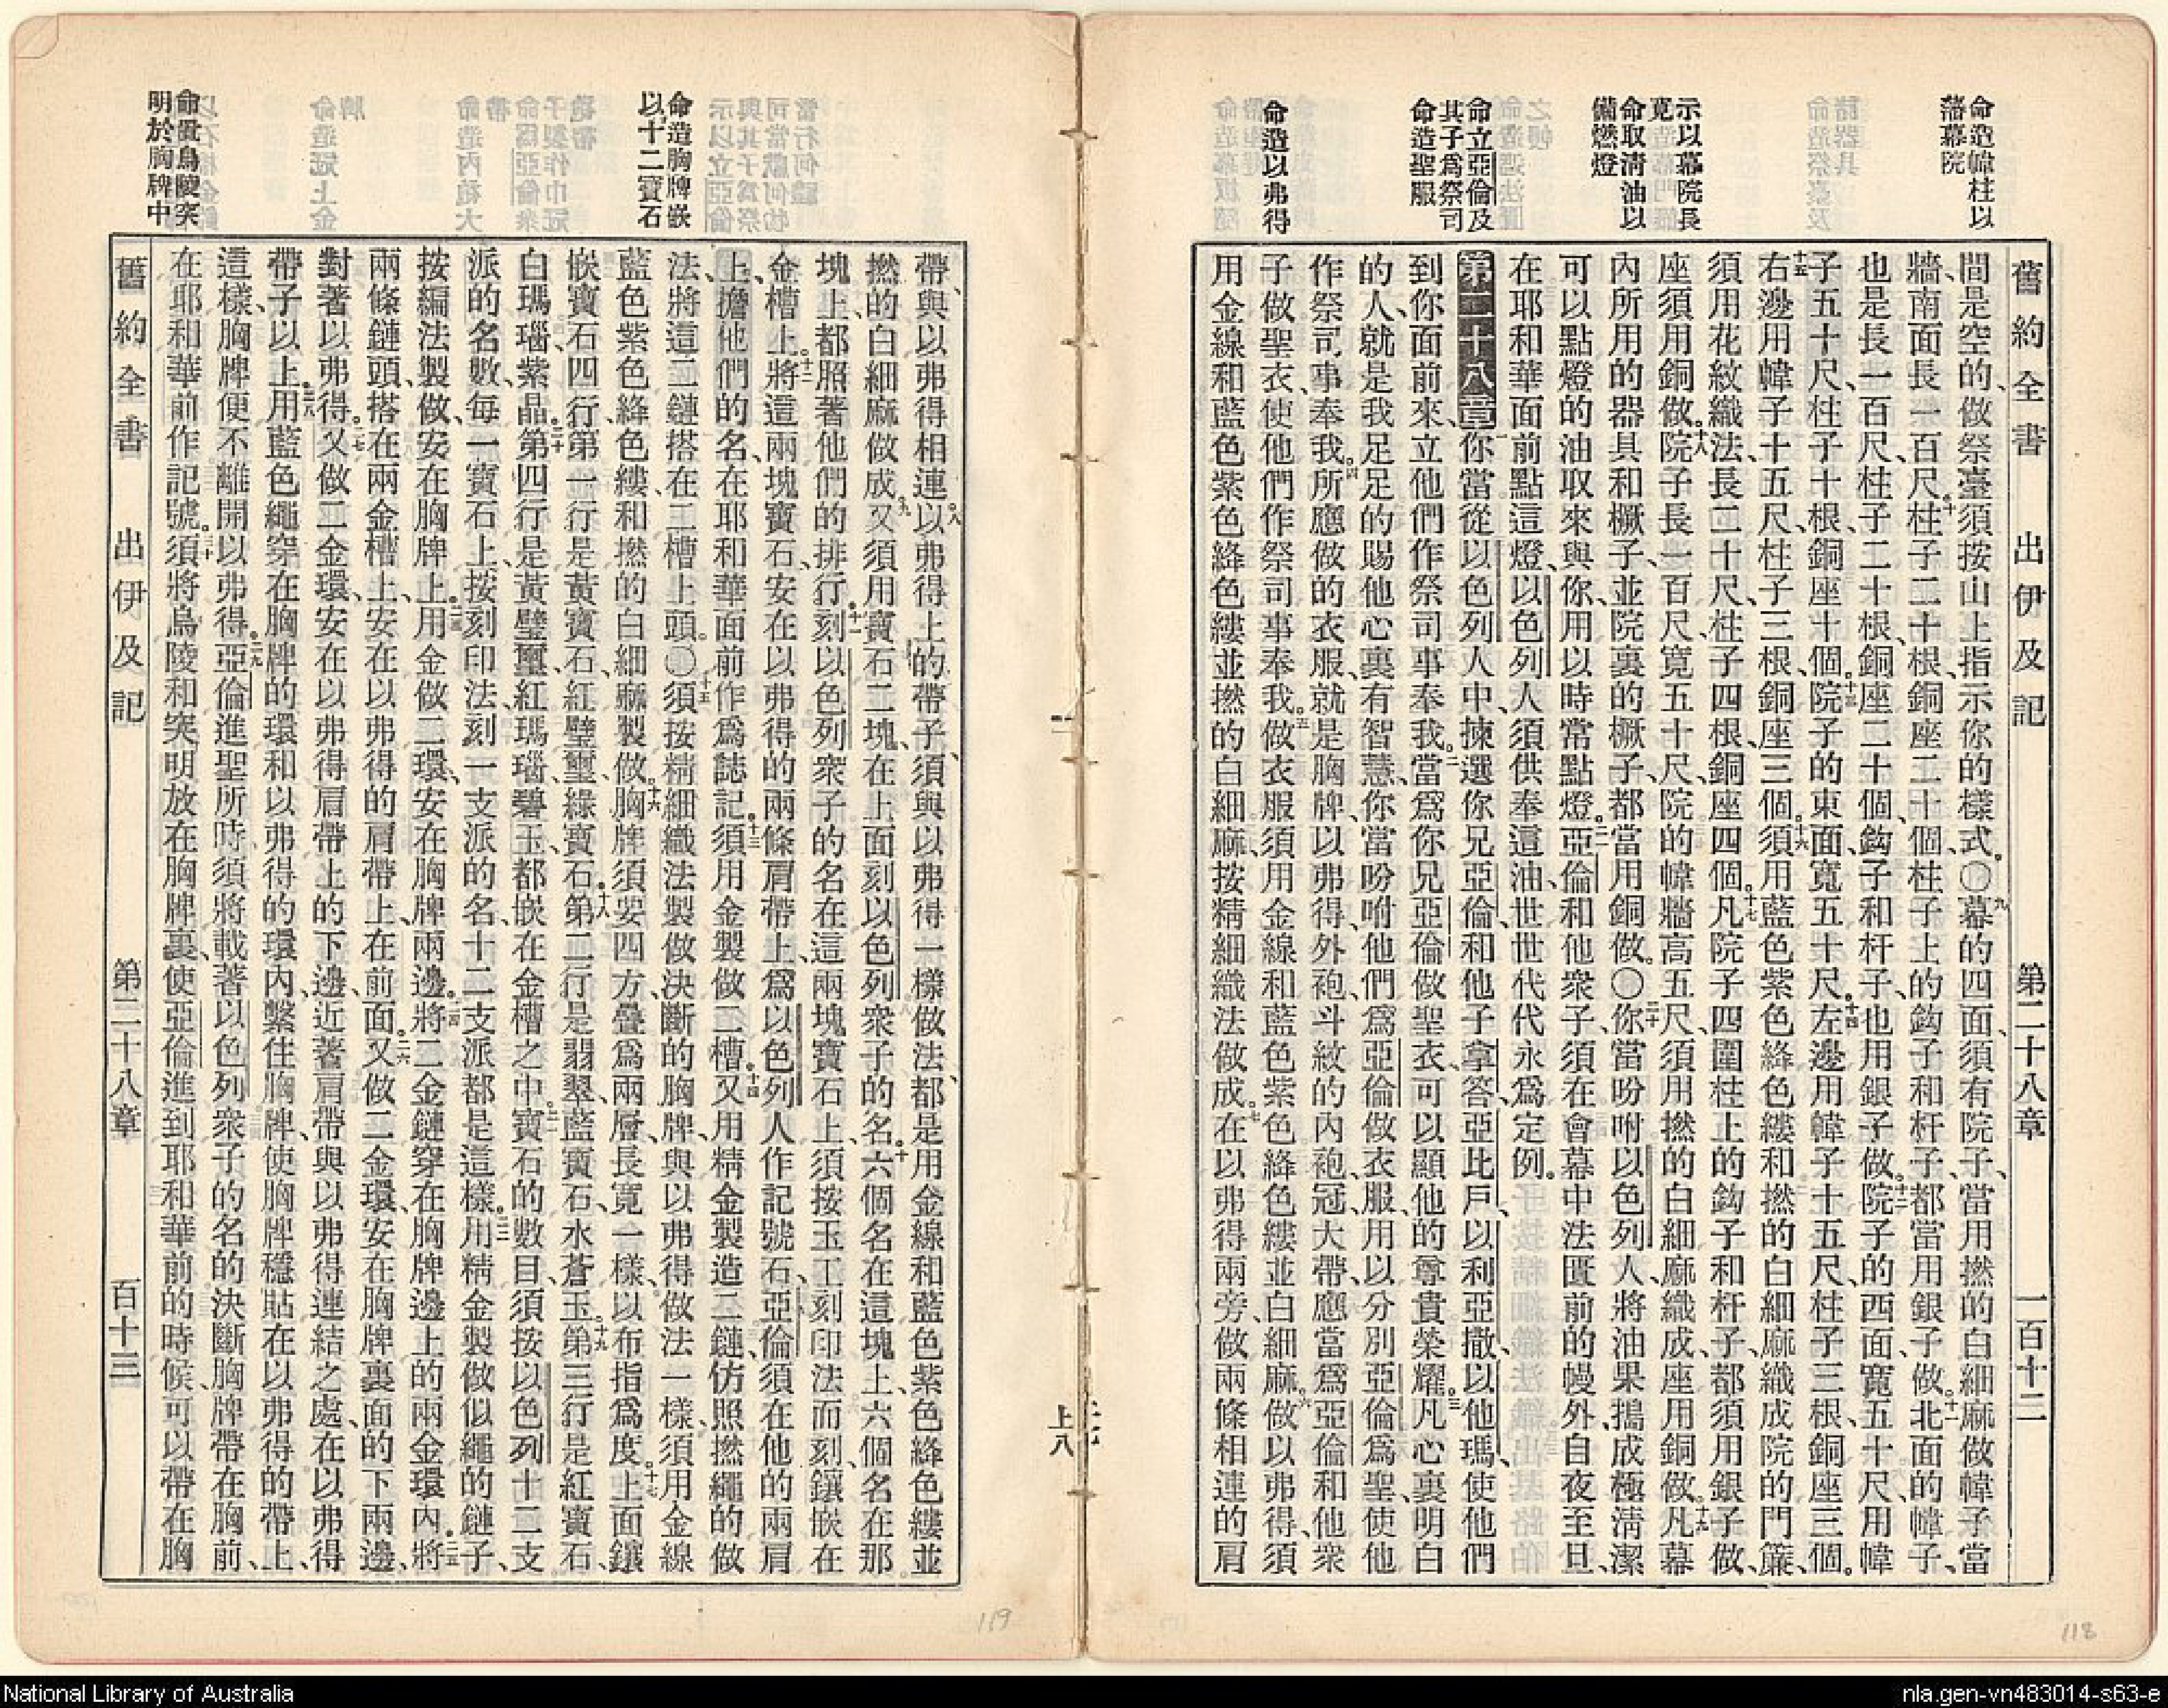 舊約全書 出伊及記 第二十八章 一百十二
命造幃柱以
藩幕院
示以幕院長
寬
命取清油以
備燃燈
命立亞倫及
其子爲祭司
命造聖服
命造以弗得
間是空的、做祭臺須按山上指示你的樣式。〇九幕的四面、須有院子、當用撚的白細麻做幃子當
牆、南面長一百尺。十柱子二十根、銅座二十個、柱子上的鈎子和杆子、都當用銀子做。十一北面的幃子、
也是長一百尺、柱子二十根、銅座二十個、鈎子和杆子、也用銀子做。十二院子的西面、寬五十尺、用幃
子五十尺、柱子十根、銅座十個。十三院子的東面、寬五十尺。十四左邊用幃子十五尺、柱子三根、銅座三個。
十五右邊用幃子十五尺、柱子三根、銅座三個。十六須用藍色紫色絳色縷和撚的白細麻織成院的門簾、
須用花紋織法、長二十尺、柱子四根、銅座四個。十七凡院子四圍柱上的鈎子和杆子、都須用銀子做、
座須用銅做。十八院子長一百尺、寬五十尺、院的幃牆高五尺、須用撚的白細麻織成、座用銅做。十九凡幕
內所用的器具和橛子、並院裏的橛子、都當用銅做。〇二十你當吩咐以色列人、將油果搗成極淸潔
可以點燈的油取來與你、用以時常點燈。二一亞倫和他衆子、須在會幕中法匱前的幔外、自夜至旦、
在耶和華面前點這燈、以色列人須供奉這油、世世代代永爲定例。
第二十八章一你當從以色列人中揀選你兄亞倫和他子拿答、亞比戶、以利亞撒、以他瑪、使他們
到你面前來、立他們作祭司事奉我。二當爲你兄亞倫做聖衣、可以顯他的尊貴榮耀。三凡心裏明白
的人、就是我足足的賜他心裏有智慧、你當吩咐他們、爲亞倫做衣服、用以分別亞倫爲聖、使他
作祭司事奉我。四所應做的衣服、就是胸牌、以弗得、外袍、斗紋的內袍、冠、大帶、應當爲亞倫和他衆
子做聖衣、使他們作祭司事奉我。五做衣服須用金線和藍色紫色絳色縷並白細麻。六做以弗得、須
用金線和藍色紫色絳色縷並撚的白細麻、按精細織法做成。七在以弗得兩旁、做兩條相連的肩
帶、與以弗得相連。八以弗得上的帶子、須與以弗得一樣做法、都是用金線和藍色紫色絳色縷並
撚的白細麻做成。九又須用寶石二塊、在上面刻以色列衆子的名。十六個名在這塊上、六個名在那
塊上、都照著他們的排行。十一刻以色列衆子的名在這兩塊寶石上、須按玉工刻印法而刻、鑲嵌在
金槽上。十二將這兩塊寶石、安在以弗得的兩條肩帶上、爲以色列人作記號石、亞倫須在他的兩肩
上、擔他們的名、在耶和華面前作爲誌記。十三須用金製做二槽。十四又用精金製造二鏈、仿照撚繩的做
法、將這二鏈搭在二槽上頭。〇十五須按精細織法製做決斷的胸牌、與以弗得做法一樣、須用金線
藍色紫色絳色縷、和撚的白細麻製做。十六胸牌須要四方疊爲兩層、長寬一樣、以布指爲度。十七上面鑲
嵌寶石四行、第一行是黃寶石紅璧璽綠寶石。十八第二行是翡翠藍寶石水蒼玉。十九第三行是紅寶石
白瑪瑙紫晶。二十第四行是黃璧璽紅瑪瑙碧玉、都嵌在金槽之中。二一寶石的數目、須按以色列十二支
派的名數、每一寶石上、按刻印法刻一支派的名、十二支派都是這樣。二二用精金製做似繩的鏈子、
按編法製做、安在胸牌上。二三用金做二環、安在胸牌兩邊。二四將二金鏈穿在胸牌邊上的兩金環內。二五將
兩條鏈頭、搭在兩金槽上、安在以弗得的肩帶上、在前面。二六又做二金環、安在胸牌裏面的下兩邊、
對著以弗得。二七又做二金環、安在以弗得肩帶上的下邊、近著肩帶與以弗得連結之處、在以弗得
帶子以上。二八用藍色繩穿在胸牌的環和以弗得的環內、繫住胸牌、使胸牌穩貼在以弗得的帶上、
這樣、胸牌便不離開以弗得。二九亞倫進聖所時、須將載著以色列衆子的名的決斷胸牌帶在胸前、
在耶和華前作記號。三十須將烏陵和突明放在胸牌裏、使亞倫進到耶和華前的時候、可以帶在胸
命造胸牌嵌
以十二寶石
命置烏陵突
明於胸牌中
舊約全書 出伊及記 第二十八章 百十三
上八
119
118
National Library of Australia
nla.gen-vn483014-s63-e